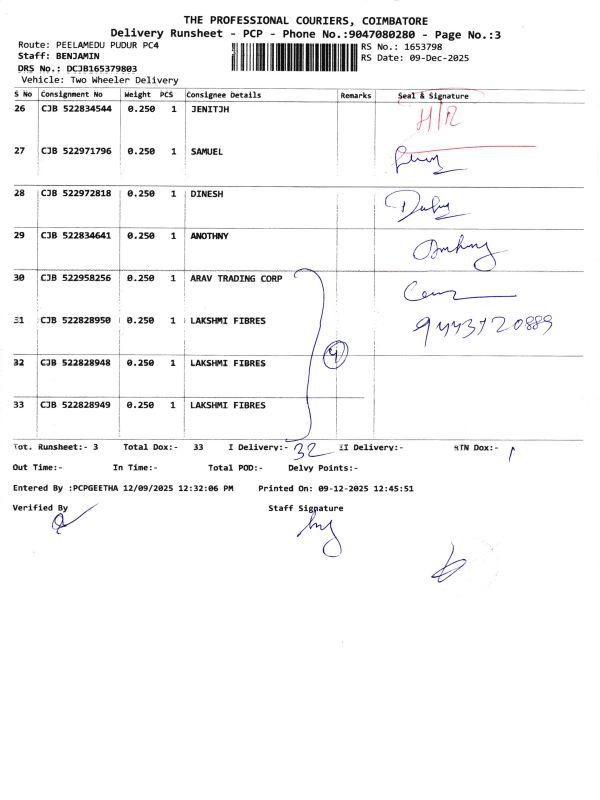 THE PROFESSIONAL COURIERS, COIMBATORE
Delivery Runsheet - PCP - Phone No.:9047080280 - Page No.:3
Route: PEELAMEDU PUDUR PC4 RS No.: 1653798
Staff: BENJAMIN RS Date: 09-Dec-2025
DRS No.: DCJB165379803
Vehicle: Two Wheeler Delivery
S No Consignment No Weight PCS Consignee Details Remarks Seal & Signature
26 CJB 522834544 0.250 1 JENITJH H/R
27 CJB 522971796 0.250 1 SAMUEL
28 CJB 522972818 0.250 1 DINESH
29 CJB 522834641 0.250 1 ANOTHNY
30 CJB 522958256 0.250 1 ARAV TRADING CORP
31 CJB 522828950 0.250 1 LAKSHMI FIBRES
32 CJB 522828948 0.250 1 LAKSHMI FIBRES
33 CJB 522828949 0.250 1 LAKSHMI FIBRES
Tot. Runsheet:- 3 Total Dox:- 33 I Delivery:- 32 II Delivery:- RTN Dox:- 1
Out Time:- In Time:- Total POD:- Delvy Points:-
Entered By :PCPGEETHA 12/09/2025 12:32:06 PM Printed On: 09-12-2025 12:45:51
Verified By Staff Signature